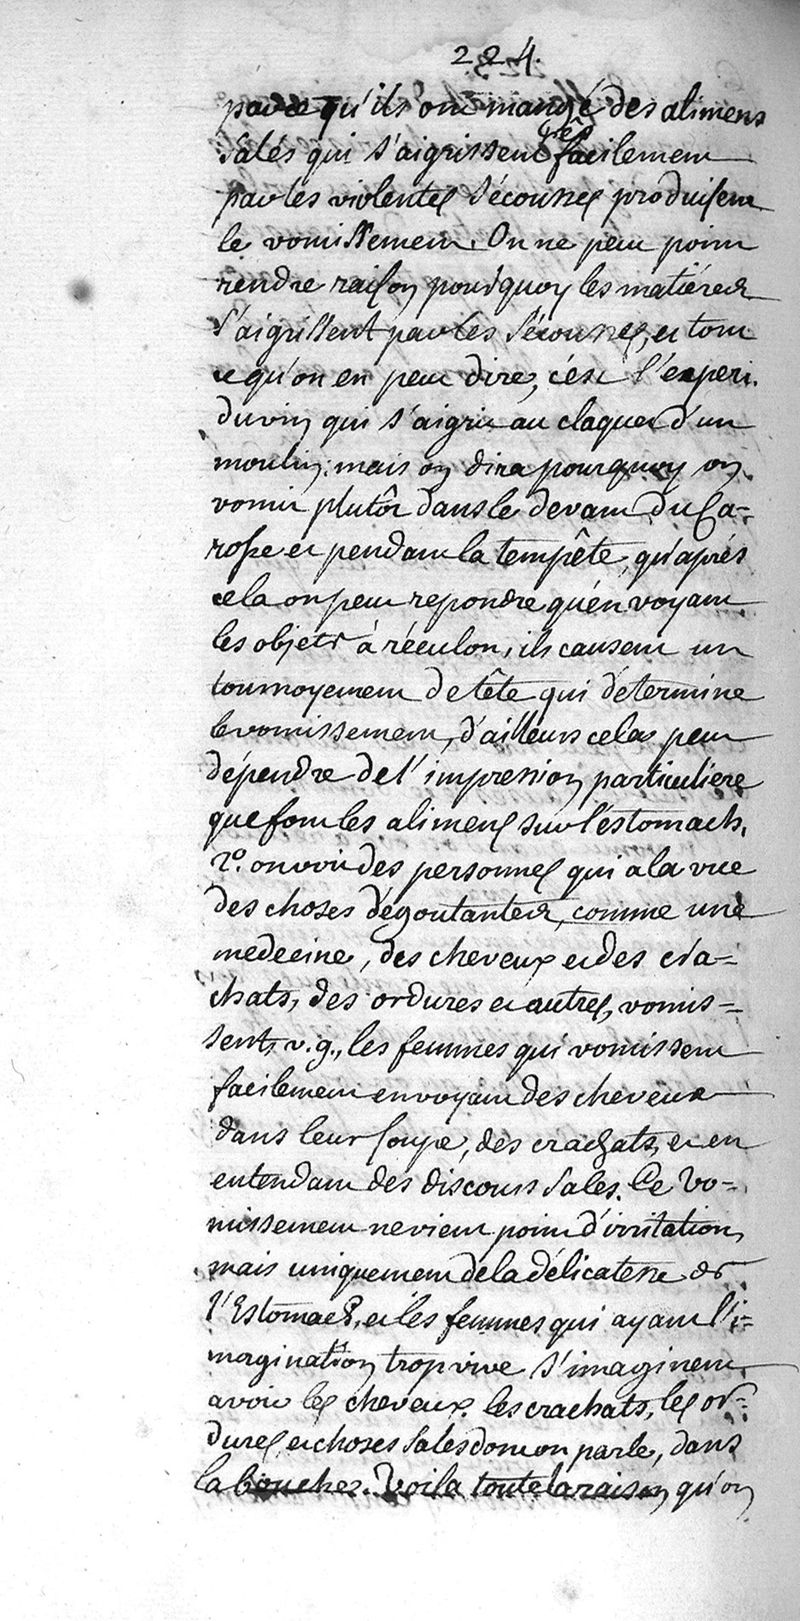 224.
parce qu'ils ont mangé des alimens
salés qui s'aigrissent très facilement
par les violentes sécousses produisent
le vomissement. On ne peut point
rendre raison pourquoy les matiéres
s'aigrissent par les sécousses, et tout
ce qu'on en peut dire, c'est l'experi.
du vin qui s'aigrit au claquet d'un
moulin; mais on dira pourquoy on
vomit plutôt dans le devant du Ca=
rosse et pendant la tempête, qu'aprés
cela on peut repondre qu'en voyant
les objets à réculon, ils causent un
tournoyement de tête qui détermine
le vomissement, d'ailleurs cela peut
dépendre de l'impression particuliere
que font les alimens sur l'éstomach.
2°. on voit des personnes qui a la vue
des choses dégoutantes, comme une
medecine, des cheveux et des cra=
chats, des ordures et autres, vomis=
sent, v.g., les femmes qui vomissent
facilement en voyant des cheveux
dans leur soupe, des crachats, et en
entendant des discours sales. Ce vo=
missement ne vient point d'irritation,
mais uniquement de la délicatesse de
l'Estomac, et les femmes qui ayant l'i=
magination trop vive s'imaginent
avoir les cheveux, les crachats, les or=
dures et choses sales dont on parle, dans
la bouche. Voila toute la raison qu'on